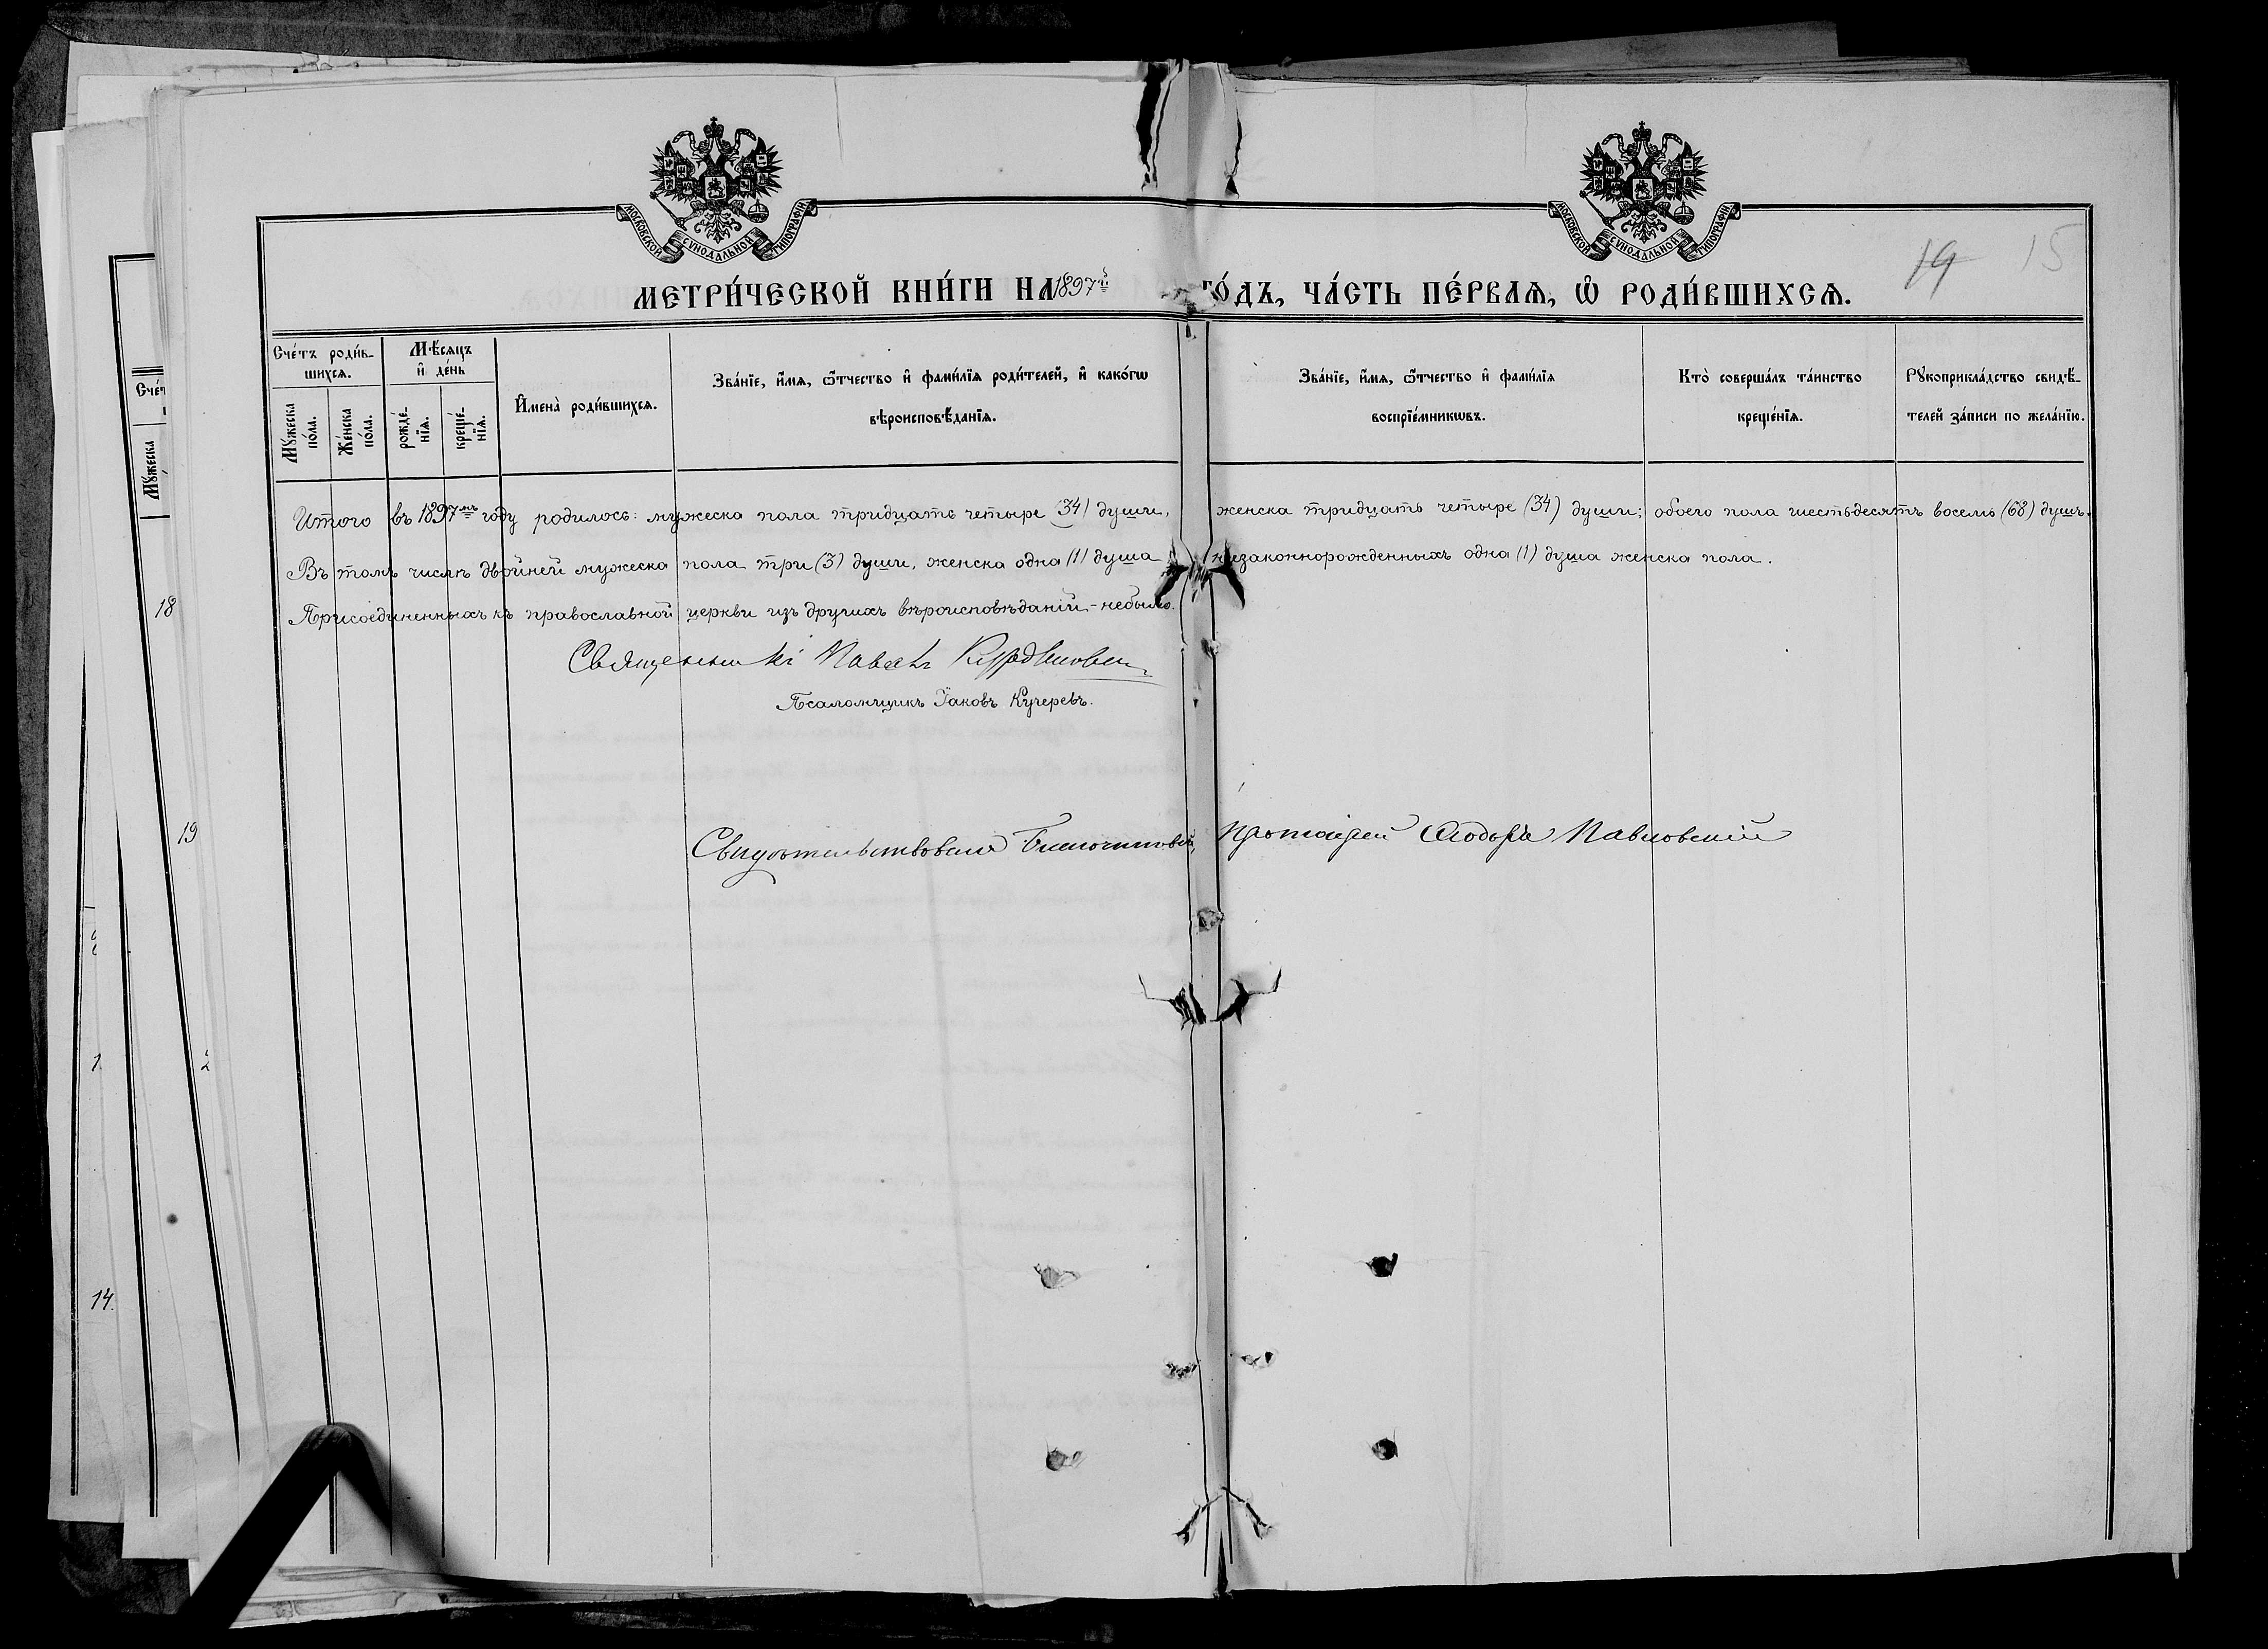 МОСКОВСКОЙ СѴНОДАЛЬНОЙ ТИПОГРАФІИ
МОСКОВСКОЙ СѴНОДАЛЬНОЙ ТИПОГРАФІИ
19 15
МЕТРИ́ЧЕСКОЙ КНИ́ГИ НА 1897й ГО́ДЪ, ЧА́СТЬ ПЕ́РВАѦ, Ѡ҆ РОДИ́ВШИХСѦ.
Сче́тъ роди́в-
шихсѧ.
Мꙋ́жеска
по́ла.
Же́нска
по́ла.
Мѣ́сѧцъ
и҆ де́нь
рожде́-
нїѧ.
креще́-
нїѧ.
И҆мена̀ роди́вшихсѧ.
Зва́нїе, и҆́мѧ, ѻ҆́тчество и҆ фами́лїѧ роди́телей, и҆ како́гѡ
вѣроисповѣ́данїѧ.
Зва́нїе, и҆́мѧ, ѻ҆́тчество и҆ фами́лїѧ
воспрїе́мникѡвъ.
Кто̀ соверша́лъ та́инство
креще́нїѧ.
Рꙋкоприкла́дство свидѣ́-
телей за́писи по жела́нїю.
Итого въ 1897мъ году родилось: мужеска пола тридцать четыре (34) души, женска тридцать четыре (34) души; обоего пола шестьдесятъ восемь (68) душъ.
Въ томъ числѣ двойней мужеска пола три (3) души, женска одна (1) душа и незаконнорожденныхъ одна (1) душа женска пола.
Присоединенныхъ къ православной церкви изъ другихъ вѣроисповѣданій - небыло.
Священникъ Павелъ
Псаломщикъ Іаковъ Кучеревъ.
Свидѣтельствовалъ Благочинный, Протоіерей Ѳеодоръ Павловскій
Сче́т
Мꙋ́жеска
18
19
2
1
14.